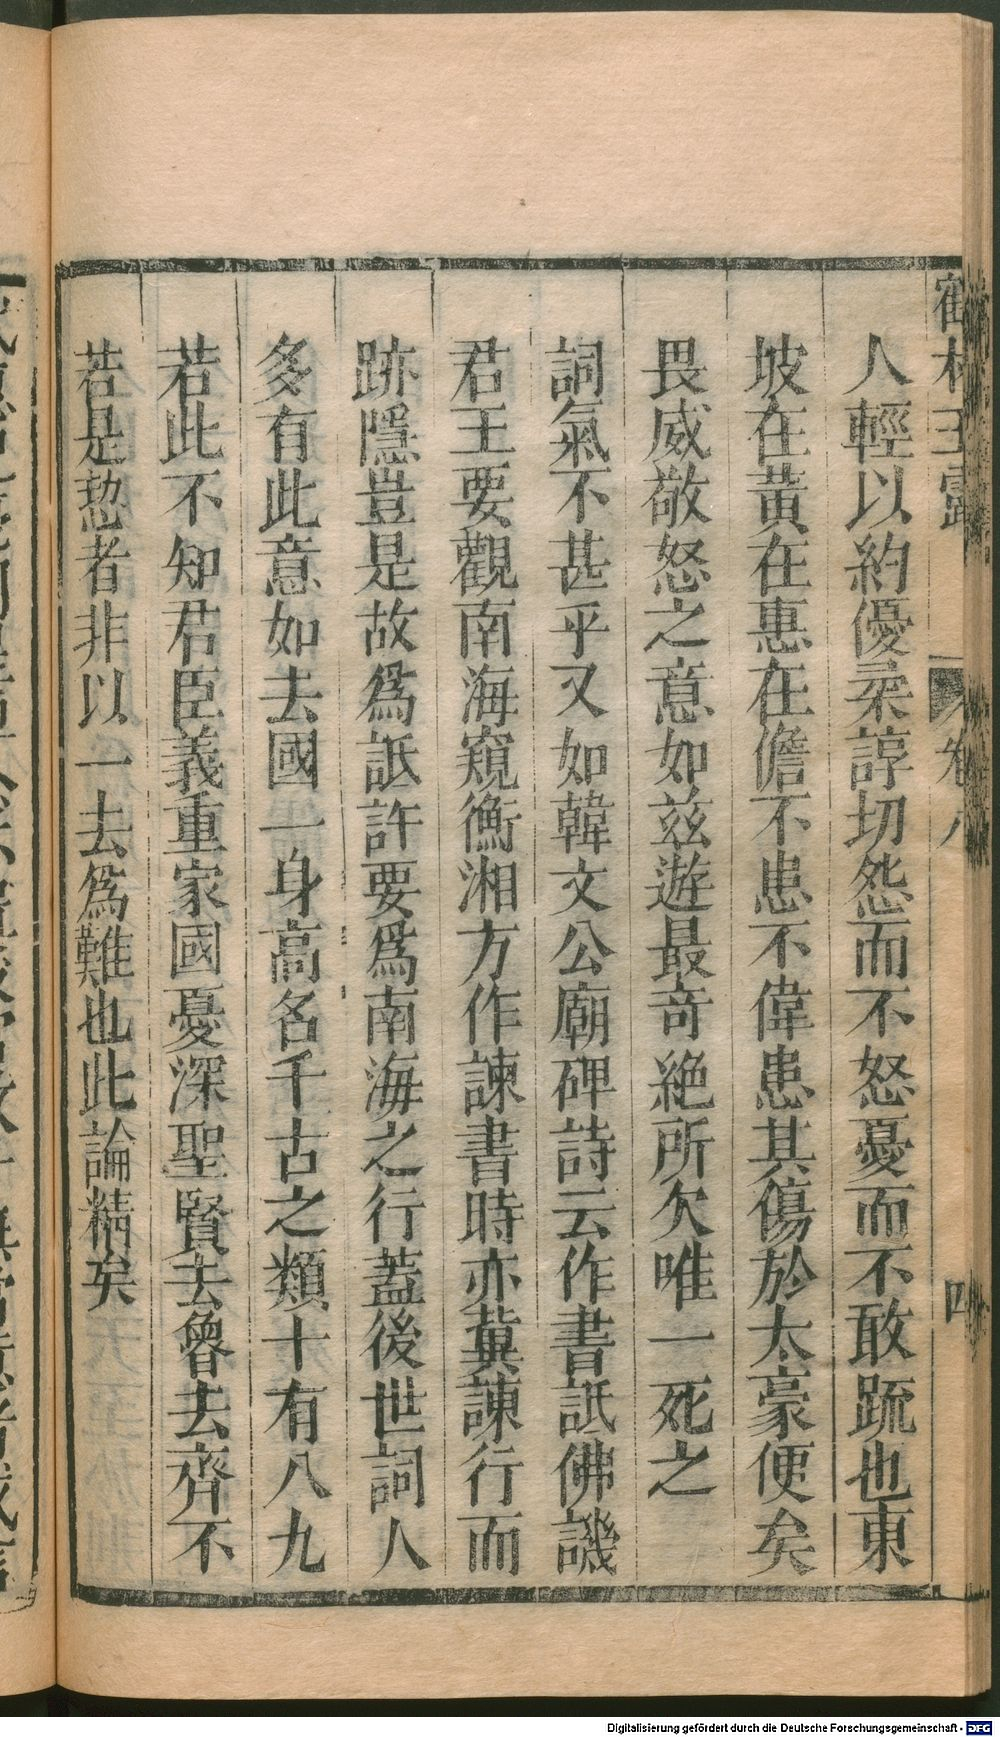 人輕以約優柔諄切怨而不怒憂而不敢䟽也東
坡在黃在惠在儋不患不偉患其傷於太豪便矣
畏威敬怒之意如兹遊最竒絶所欠唯一死之
詞氣不甚乎又如韓文公廟碑詩云作書詆佛譏
君王要觀南海窺衡湘方作諫書時亦冀諫行而
跡隱豈是故爲詆訐要爲南海之行蓋後世詞人
多有此意如去國一身高名千古之類十有八九
若此不知君臣義重家國憂深聖賢去魯去齊不
若是恝者非以一去爲難也此論精矣
卷八
四
Digitalisierung gefördert durch die Deutsche Forschungsgemeinschaft - DFG